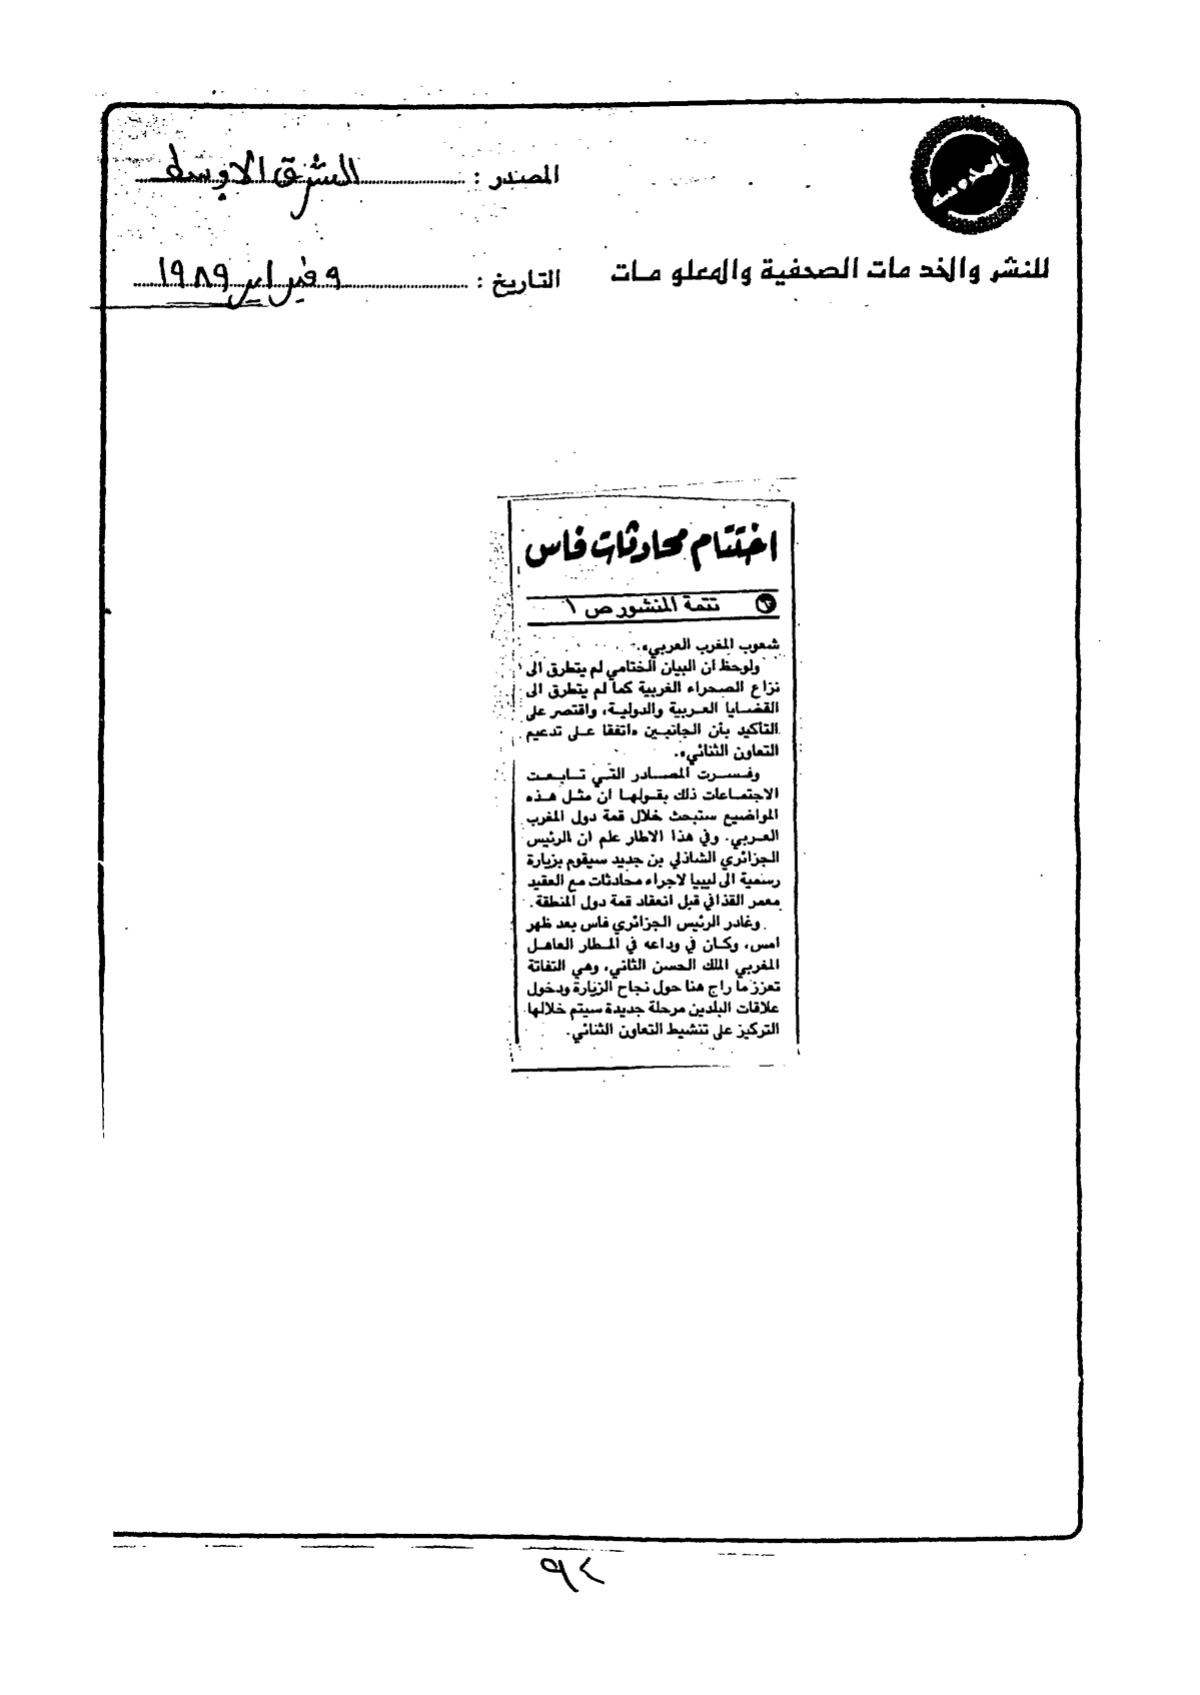 المصدر : الشرق الاوسط
للنشر والخدمات الصحفية والمعلومات
التاريخ : ٩ فبراير ١٩٨٩
اختتام محادثات فاس
تتمة المنشور ص ١
شعوب المغرب العربي».
ولوحظ ان البيان الختامي لم يتطرق الى
نزاع الصحراء الغربية كما لم يتطرق الى
القضايا العربية والدولية، واقتصر على
التأكيد بأن الجانبين «اتفقا على تدعيم
التعاون الثنائي».
وفسرت المصادر التي تابعت
الاجتماعات ذلك بقولها ان مثل هذه
المواضيع ستبحث خلال قمة دول المغرب
العربي. وفي هذا الاطار علم ان الرئيس
الجزائري الشاذلي بن جديد سيقوم بزيارة
رسمية الى ليبيا لاجراء محادثات مع العقيد
معمر القذافي قبل انعقاد قمة دول المنطقة.
وغادر الرئيس الجزائري فاس بعد ظهر
امس، وكان في وداعه في المطار العاهل
المغربي الملك الحسن الثاني، وهي التفاتة
تعزز ما راج هنا حول نجاح الزيارة ودخول
علاقات البلدين مرحلة جديدة سيتم خلالها
التركيز على تنشيط التعاون الثنائي.